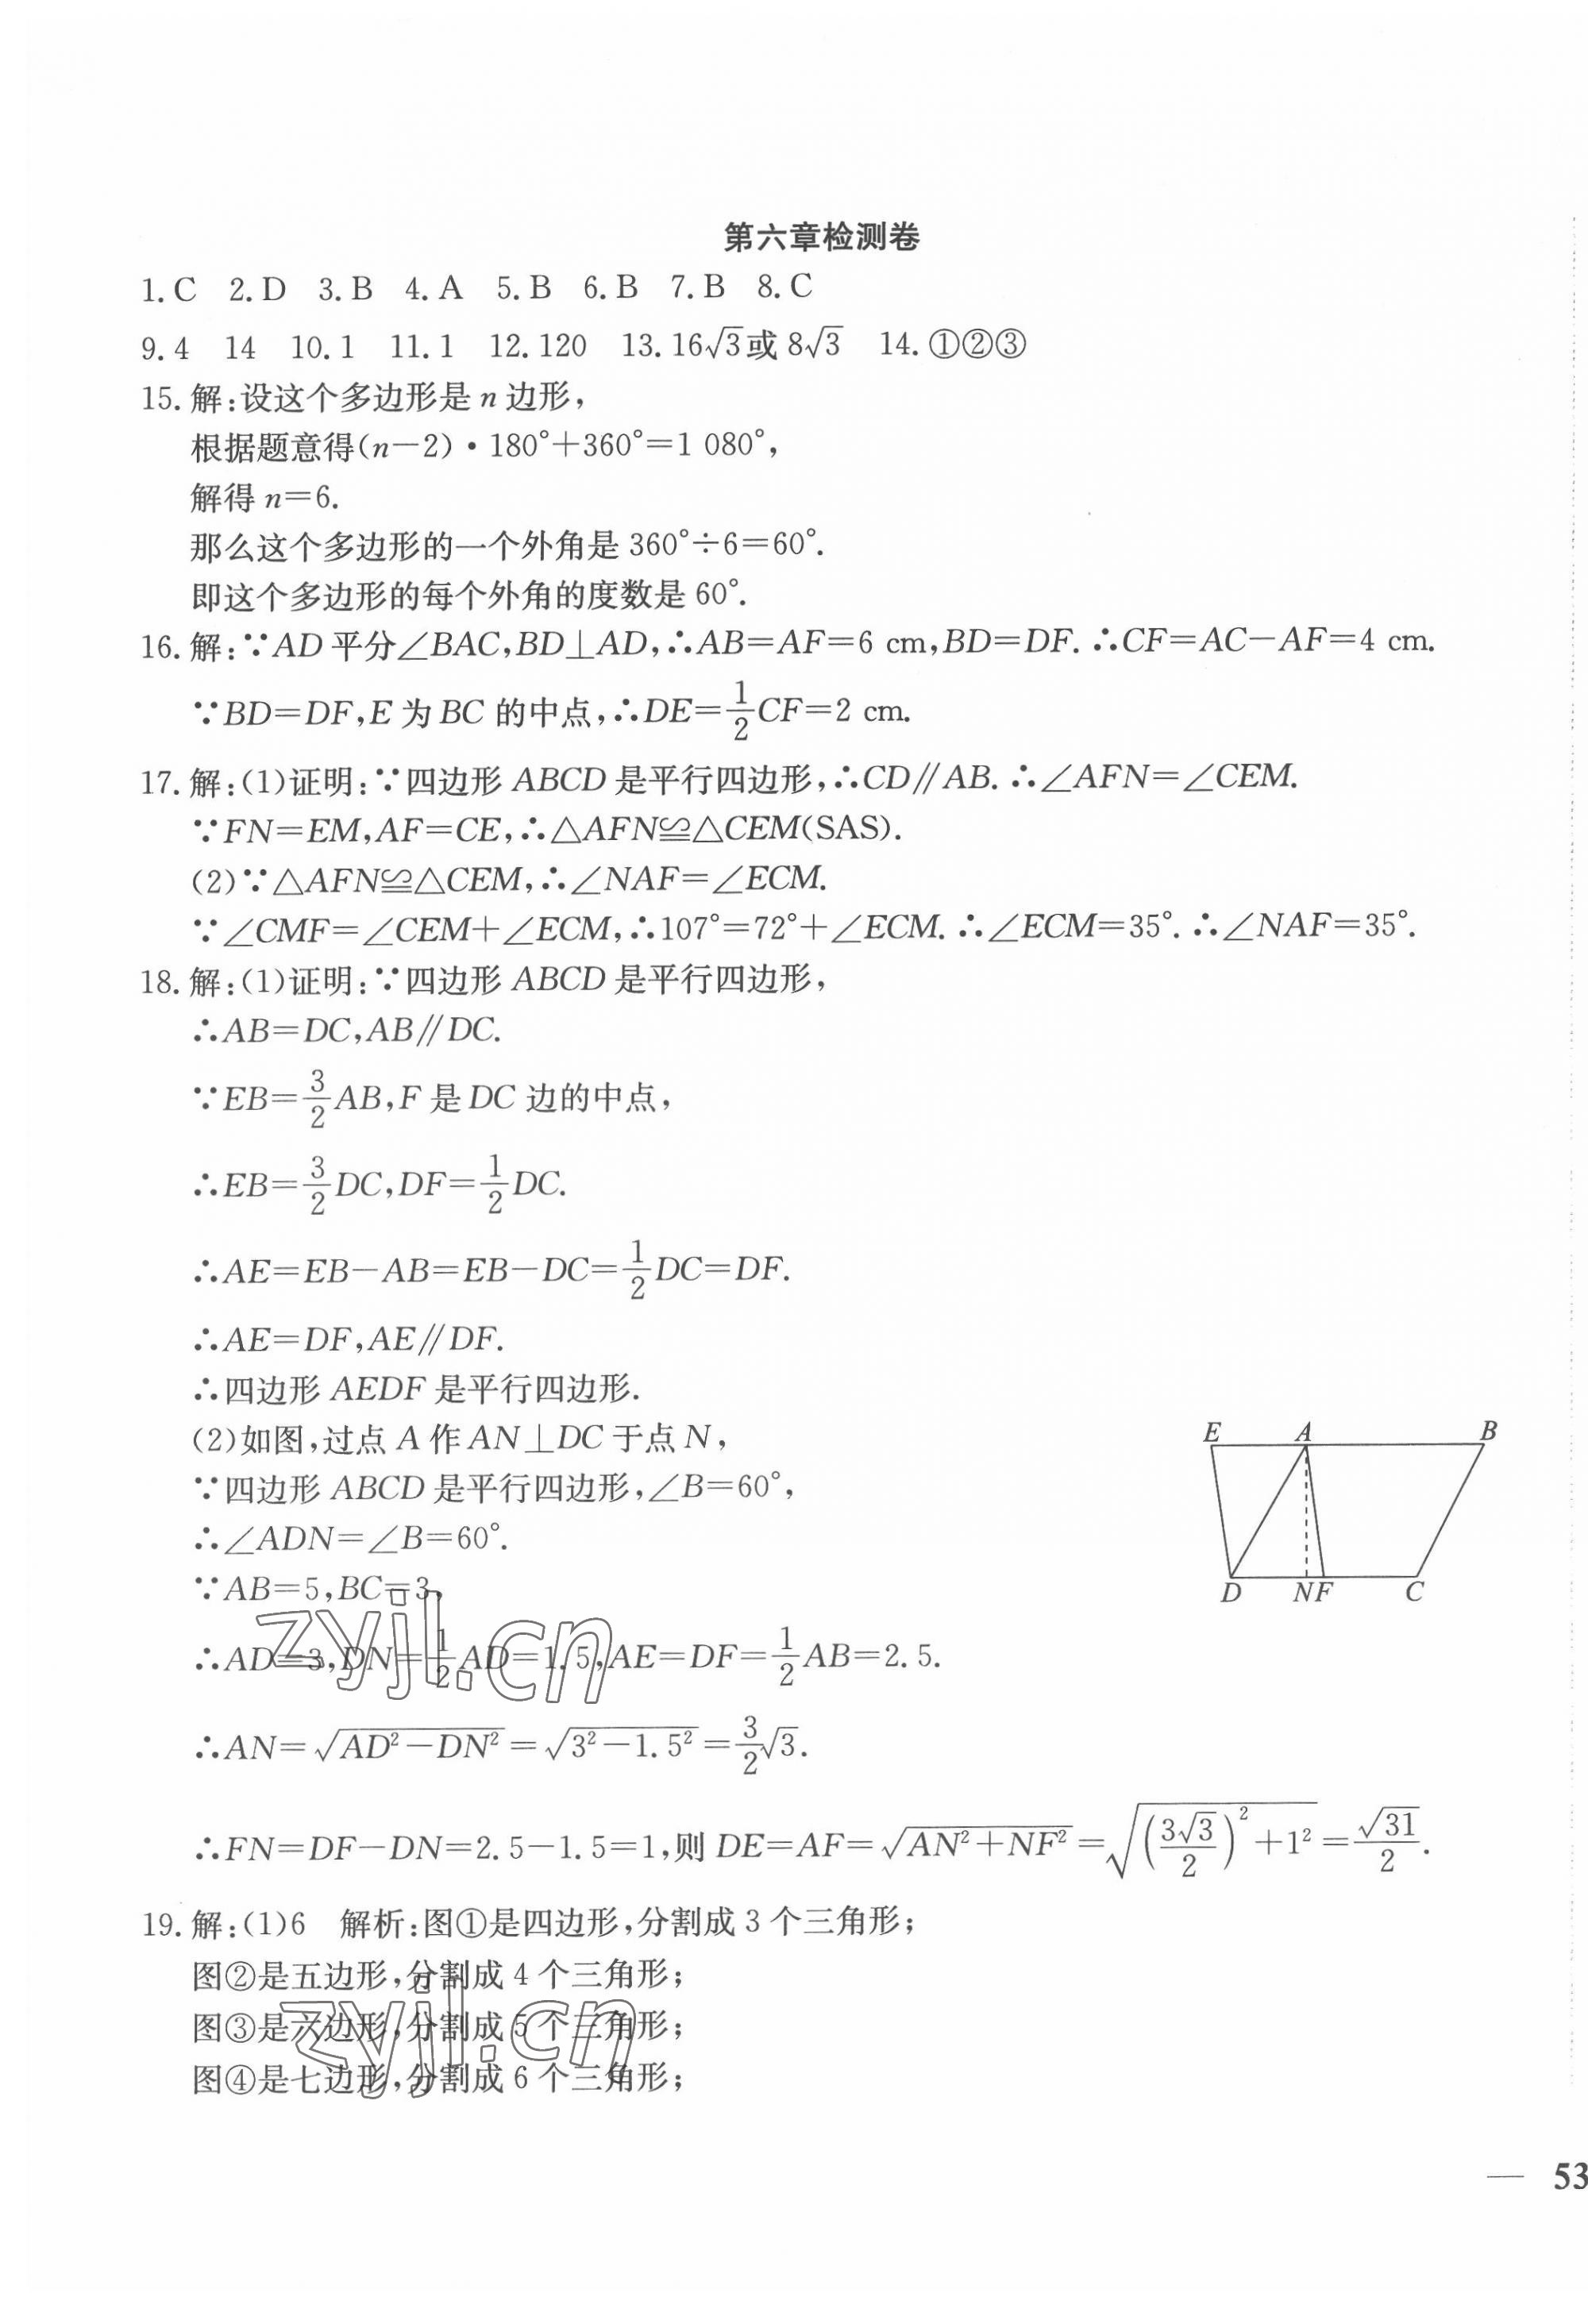 第六章检测卷
1. C 2. D 3. B 4. A 5. B 6. B 7. B 8. C
9. 4 14 10. 1 11. 1 12. 120 13. 16√3或 8√3 14. ①②③
15. 解:设这个多边形是 n 边形,
根据题意得(n－2)·180°＋360°＝1 080°,
解得 n＝6.
那么这个多边形的一个外角是 360°÷6＝60°.
即这个多边形的每个外角的度数是 60°.
16. 解:∵AD 平分∠BAC,BD⊥AD,∴AB＝AF＝6 cm,BD＝DF. ∴CF＝AC－AF＝4 cm.
∵BD＝DF,E 为 BC 的中点,∴DE＝1/2CF＝2 cm.
17. 解:(1)证明:∵四边形 ABCD 是平行四边形,∴CD∥AB. ∴∠AFN＝∠CEM.
∵FN＝EM,AF＝CE,∴△AFN≌△CEM(SAS).
(2)∵△AFN≌△CEM,∴∠NAF＝∠ECM.
∵∠CMF＝∠CEM＋∠ECM,∴107°＝72°＋∠ECM. ∴∠ECM＝35°. ∴∠NAF＝35°.
18. 解:(1)证明:∵四边形 ABCD 是平行四边形,
∴AB＝DC,AB∥DC.
∵EB＝3/2AB,F 是 DC 边的中点,
∴EB＝3/2DC,DF＝1/2DC.
∴AE＝EB－AB＝EB－DC＝1/2DC＝DF.
∴AE＝DF,AE∥DF.
∴四边形 AEDF 是平行四边形.
(2)如图,过点 A 作 AN⊥DC 于点 N,
∵四边形 ABCD 是平行四边形,∠B＝60°,
∴∠ADN＝∠B＝60°.
∵AB＝5,BC＝3,
∴AD＝3,DN＝1/2AD＝1.5,AE＝DF＝1/2AB＝2.5.
∴AN＝√(AD²－DN²)＝√(3²－1.5²)＝3/2√3.
∴FN＝DF－DN＝2.5－1.5＝1,则 DE＝AF＝√(AN²＋NF²)＝√((3√3/2)²＋1²)＝√31/2.
E A B
D N F C
19. 解:(1)6 解析:图①是四边形,分割成 3 个三角形;
图②是五边形,分割成 4 个三角形;
图③是六边形,分割成 5 个三角形;
图④是七边形,分割成 6 个三角形;
zyjl.cn
zyjl.cn
— 53